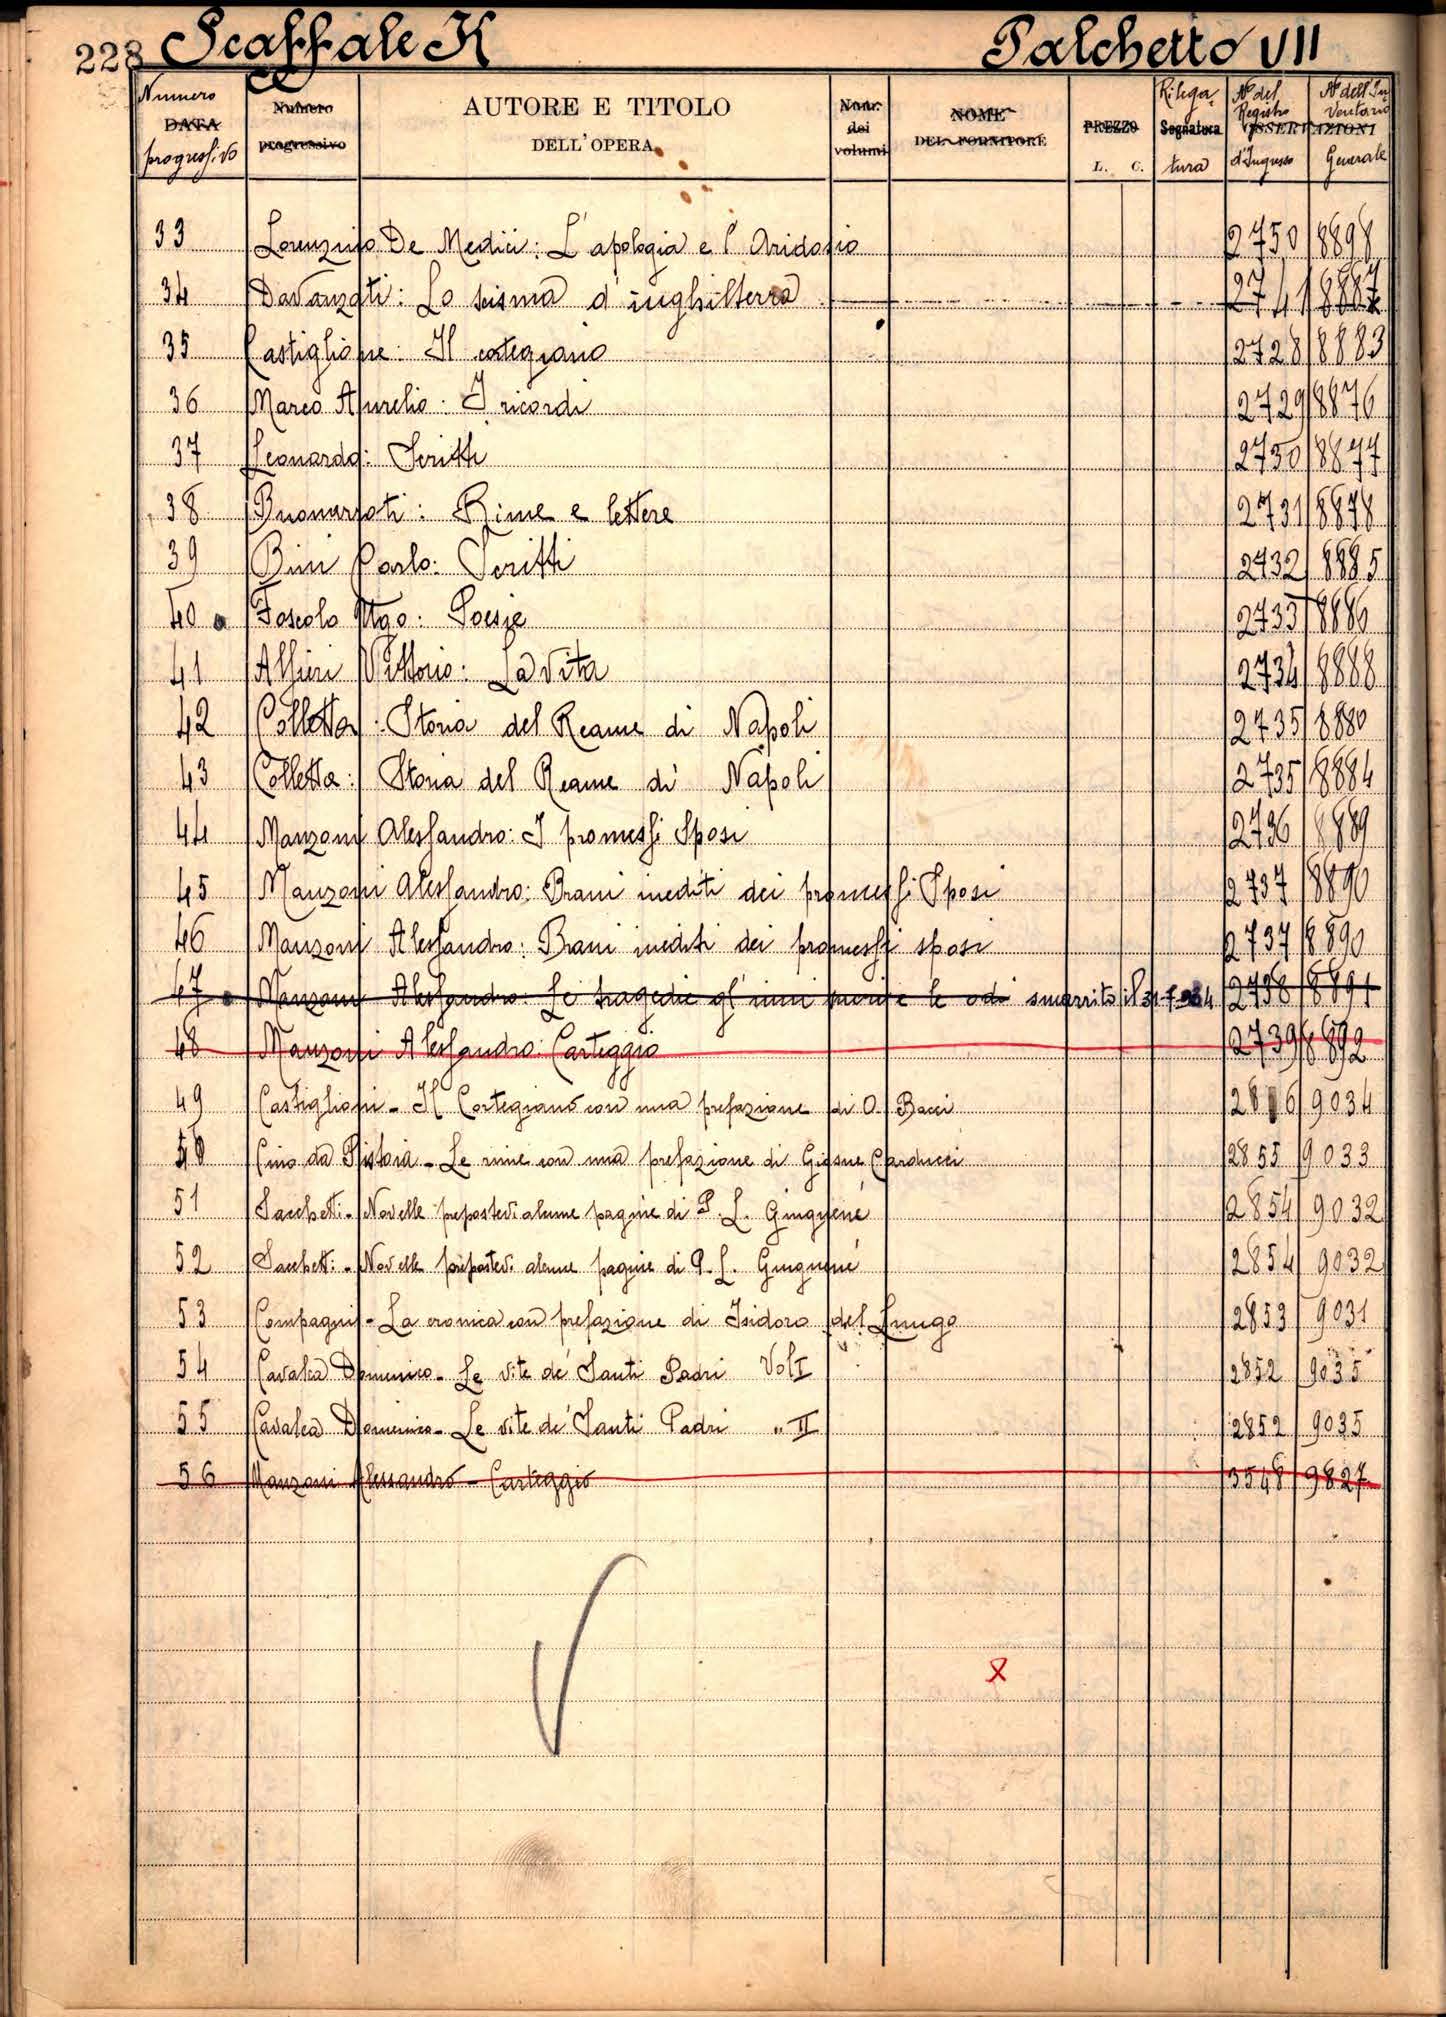 228 Scaffale K Palchetto VII
Numero DATA progress.vo
Numero progressivo
AUTORE E TITOLO DELL'OPERA
Num. dei volumi
NOME DEL FORNITORE
PREZZO L. C.
Rilega Segnatura tura
N° del Registro d'Ingresso
OSSERVAZIONI
N° dell'Inventario Generale
33 Lorenzino De Medici: L'apologia e l'Aridosio 2750 8898
34 Davanzati: Lo scisma d'inghilterra 2741 8887
35 Castiglione: Il cortegiano 2728 8883
36 Marco Aurelio: I ricordi 2729 8876
37 Leonardo: Scritti 2730 8877
38 Buonarroti: Rime e lettere 2731 8878
39 Bini Carlo: Scritti 2732 8885
40 Foscolo Ugo: Poesie 2733 8886
41 Alfieri Vittorio: La Vita 2734 8888
42 Colletta: Storia del Reame di Napoli 2735 8880
43 Colletta: Storia del Reame di Napoli 2735 8884
44 Manzoni Alessandro: I promessi Sposi 2736 8889
45 Manzoni Alessandro: Brani inediti dei promessi Sposi 2737 8890
46 Manzoni Alessandro: Brani inediti dei promessi sposi 2737 8890
47 Manzoni Alessandro: Le tragedie gl'inni e le odi smarrito il 2738 8891
48 Manzoni Alessandro: Carteggio 2739 8892
49 Castiglioni - Il Cortegiano con una prefazione di O. Bacci 9034
50 Cino da Pistoia - Le rime con una prefazione di Giosue Carducci 2855 9033
51 Sacchetti - Novelle prepostevi alcune pagine di P. L. Ginguené 2854 9032
52 Sacchetti - Novelle prepostevi alcune pagine di P. L. Ginguené 2854 9032
53 Compagni - La cronica con prefazione di Isidoro del Lungo 2853 9031
54 Cavalca Domenico - Le vite de' Santi Padri Vol I 2852 9035
55 Cavalca Domenico - Le vite de' Santi Padri " II 2852 9035
56 Manzoni Alessandro - Carteggio 3548 9827